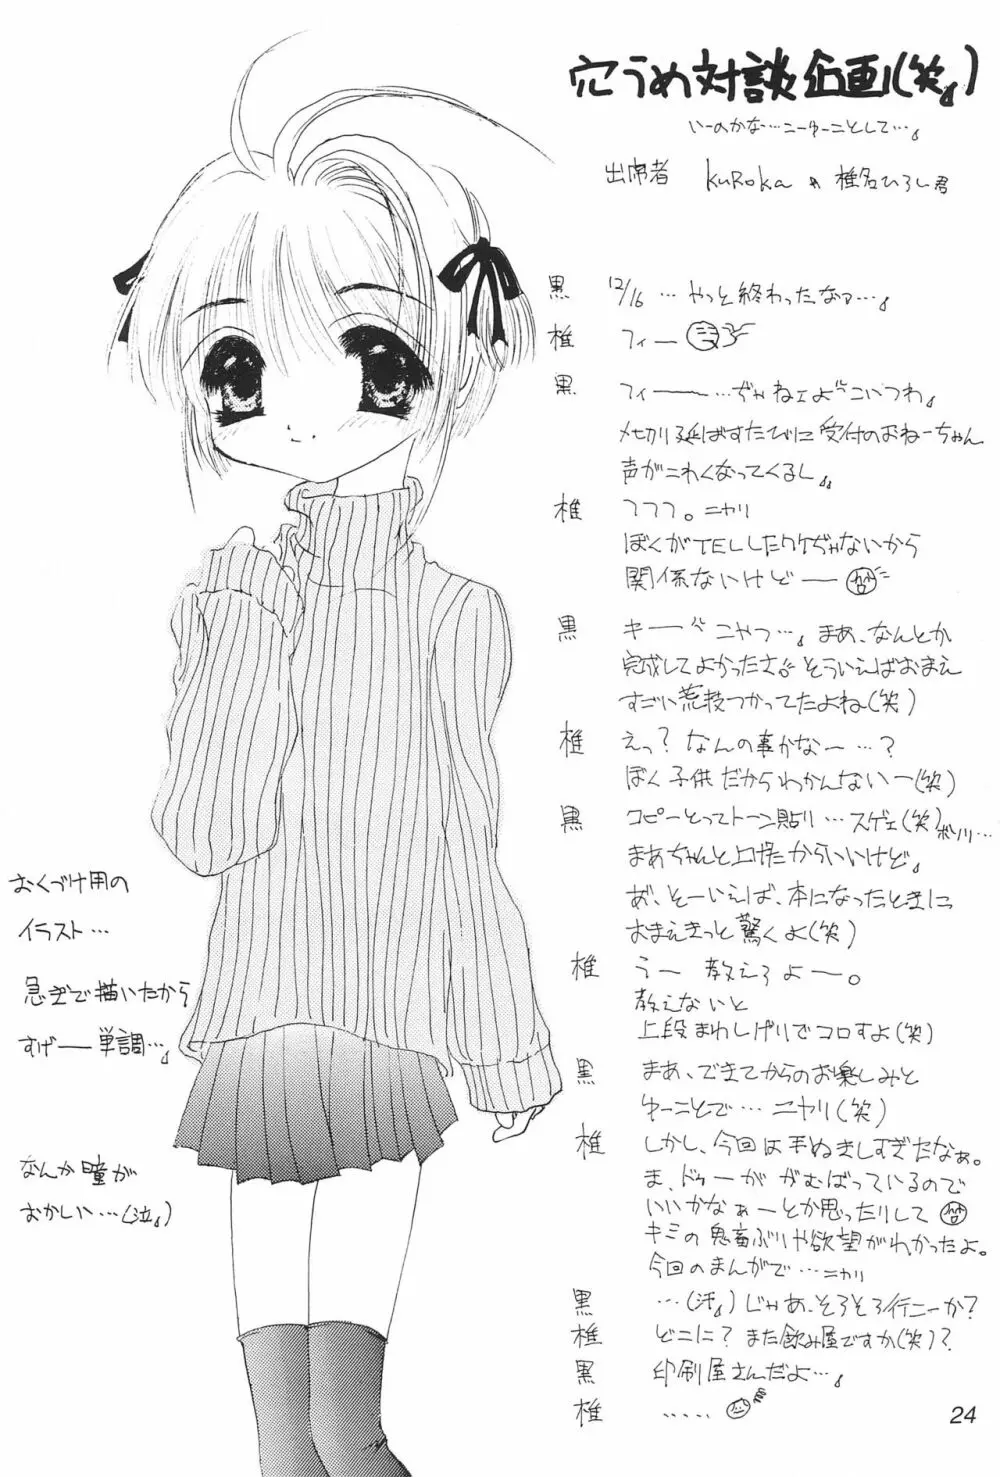 穴うめ対談企画(笑)
いーのかな…こーゆーことして…
出席者 KuRoKa 椎名ひろし君
黒 12/16 …やっと終わったなァ…
椎 フィー
黒 フィー……ぢゃねェよ こいつわ
〆切り延ばすたびに受付のおねーちゃん
声がこわくなってくるし
椎 フフフ。ニヤリ
ぼくがTELしたワケぢゃないから
関係ないけどー
黒 キー こやつ…。まあ、なんとか
完成してよかったさ。そういえばおまえ
すごい荒技つかってたよね(笑)
椎 えっ?なんの事かなー…?
ぼく子供だからわかんないー(笑)
黒 コピーとってトーン貼り…スゲェ(笑)
まあちゃんと上げたからいいけど。
あ、そーいえば、本になったときに
おまえきっと驚くよ(笑)
椎 うー 教えろよー。
教えないと
上段まわしげりでコロすよ(笑)
黒 まあ、できてからのお楽しみと
ゆーことで…ニヤリ(笑)
椎 しかし、今回は手ぬきしすぎたなぁ。
ま、ドゥーががむばっているので
いいかなぁーとか思ったりして
キミの鬼畜ぶりや欲望がわかったよ。
今回のまんがで…ニヤリ
黒 …(汗)じゃあ、そろそろ行こーか?
椎 どこに?また飲み屋ですか(笑)?
黒 印刷屋さんだよ…
椎 ……
おくづけ用の
イラスト…
急ぎで描いたから
すげー単調…
なんか瞳が
おかしい…(泣)
24